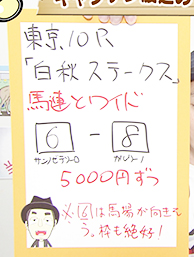 東京10R
「白秋ステークス」
馬連とワイド
6 - 8
サンノゼテソーロ カジノ・1
5000円ずつ
※6は馬場が向きそ
う。枠も絶好！